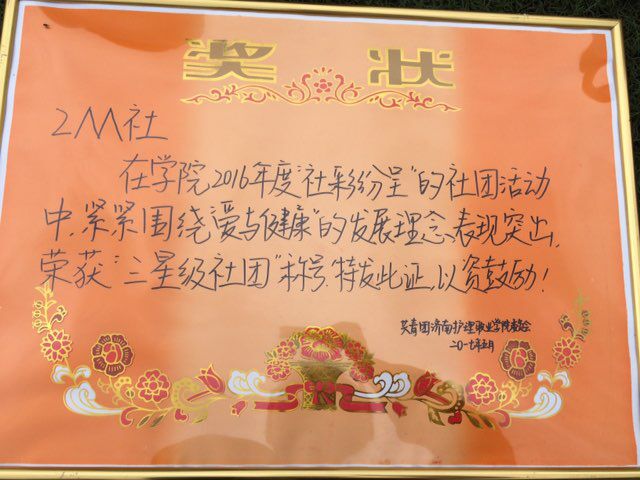 奖状
2M社
在学院2016年度"社彩纷呈"的社团活动
中,紧紧围绕"爱与健康"的发展理念,表现突出,
荣获"三星级社团"称号.特发此证,以资鼓励!
共青团济南护理职业学院委员会
二〇一七年五月